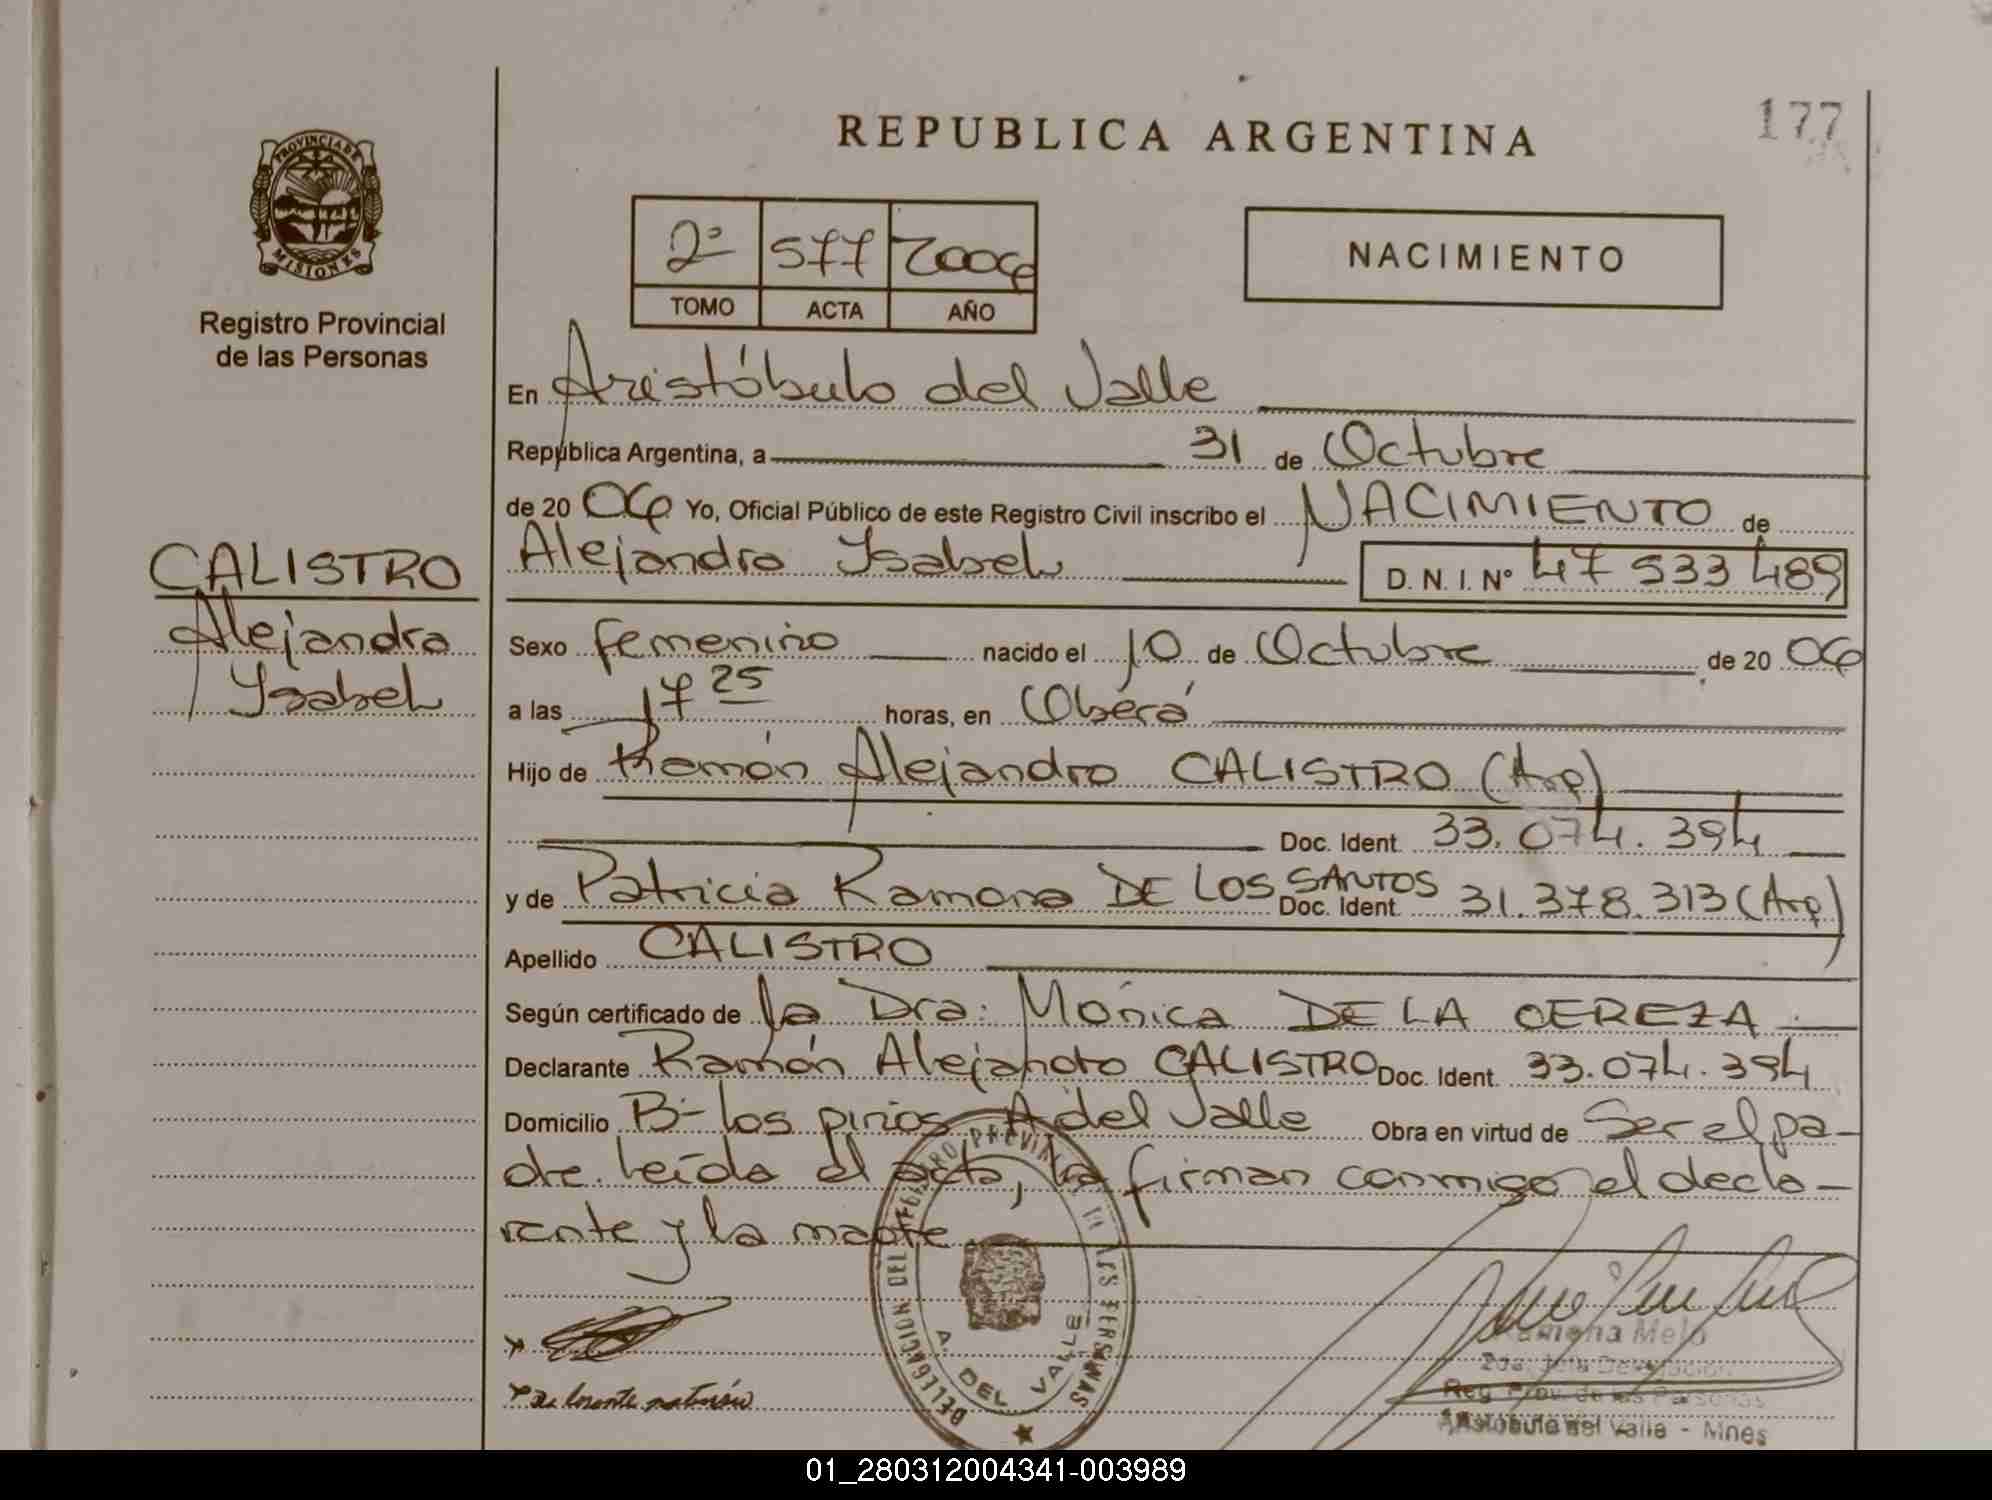 177
REPUBLICA ARGENTINA
PROVINCIA DE
MISIONES
Registro Provincial
de las Personas
2º 577 2006
TOMO ACTA AÑO
NACIMIENTO
En Aristóbulo del Valle
República Argentina, a 31 de Octubre
de 20 06 Yo, Oficial Público de este Registro Civil inscribo el NACIMIENTO de
Alejandra Ysabel D. N. I. Nº 47 533 489
CALISTRO
Alejandra
Ysabel
Sexo femenino nacido el 10 de Octubre de 20 06
a las 17 25 horas, en Oberá
Hijo de Ramón Alejandro CALISTRO (Arg)
Doc. Ident. 33.074.394
y de Patricia Ramona DE LOS SANTOS Doc. Ident. 31.378.313 (Arg)
Apellido CALISTRO
Según certificado de la Dra: Mónica DE LA CEREZA
Declarante Ramón Alejandro CALISTRO Doc. Ident. 33.074.394
Domicilio Bº los pinos A del Valle Obra en virtud de Ser el pa-
dre. leída el acta, la firman conmigo el decla-
rante y la madre
DELEGACION DEL REGISTRO PROVINCIAL DE LAS PERSONAS
A. DEL VALLE
Ramona Melo
2da. Jefa Delegación
Reg. Prov. de las Personas
Aristóbulo del Valle - Mnes
01_280312004341-003989